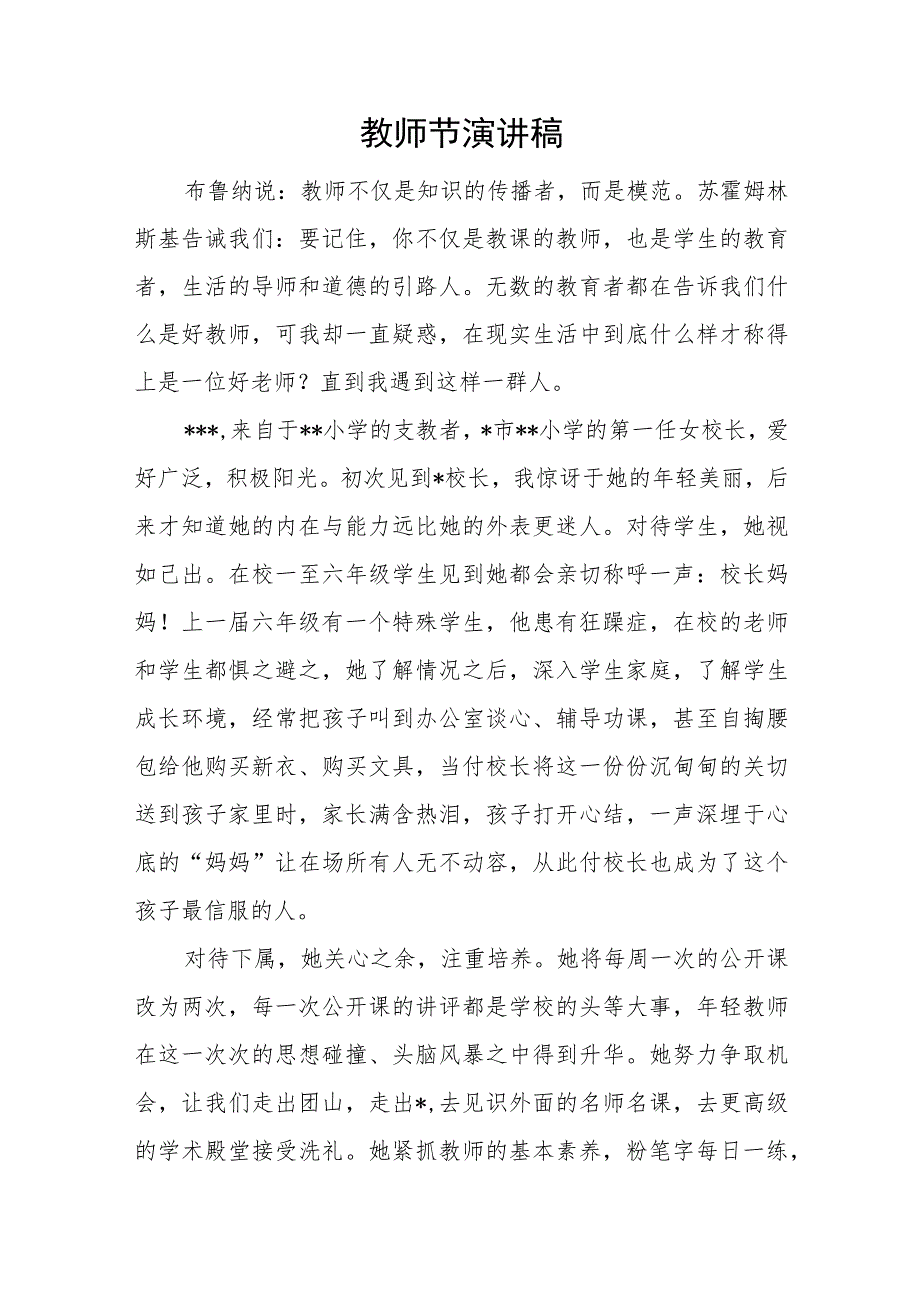 教师节演讲稿
布鲁纳说：教师不仅是知识的传播者，而是模范。苏霍姆林
斯基告诫我们：要记住，你不仅是教课的教师，也是学生的教育
者，生活的导师和道德的引路人。无数的教育者都在告诉我们什
么是好教师，可我却一直疑惑，在现实生活中到底什么样才称得
上是一位好老师？直到我遇到这样一群人。
***,来自于**小学的支教者，*市**小学的第一任女校长，爱
好广泛，积极阳光。初次见到*校长，我惊讶于她的年轻美丽，后
来才知道她的内在与能力远比她的外表更迷人。对待学生，她视
如己出。在校一至六年级学生见到她都会亲切称呼一声：校长妈
妈！上一届六年级有一个特殊学生，他患有狂躁症，在校的老师
和学生都惧之避之，她了解情况之后，深入学生家庭，了解学生
成长环境，经常把孩子叫到办公室谈心、辅导功课，甚至自掏腰
包给他购买新衣、购买文具，当付校长将这一份份沉甸甸的关切
送到孩子家里时，家长满含热泪，孩子打开心结，一声深埋于心
底的“妈妈”让在场所有人无不动容，从此付校长也成为了这个
孩子最信服的人。
对待下属，她关心之余，注重培养。她将每周一次的公开课
改为两次，每一次公开课的讲评都是学校的头等大事，年轻教师
在这一次次的思想碰撞、头脑风暴之中得到升华。她努力争取机
会，让我们走出团山，走出*,去见识外面的名师名课，去更高级
的学术殿堂接受洗礼。她紧抓教师的基本素养，粉笔字每日一练，